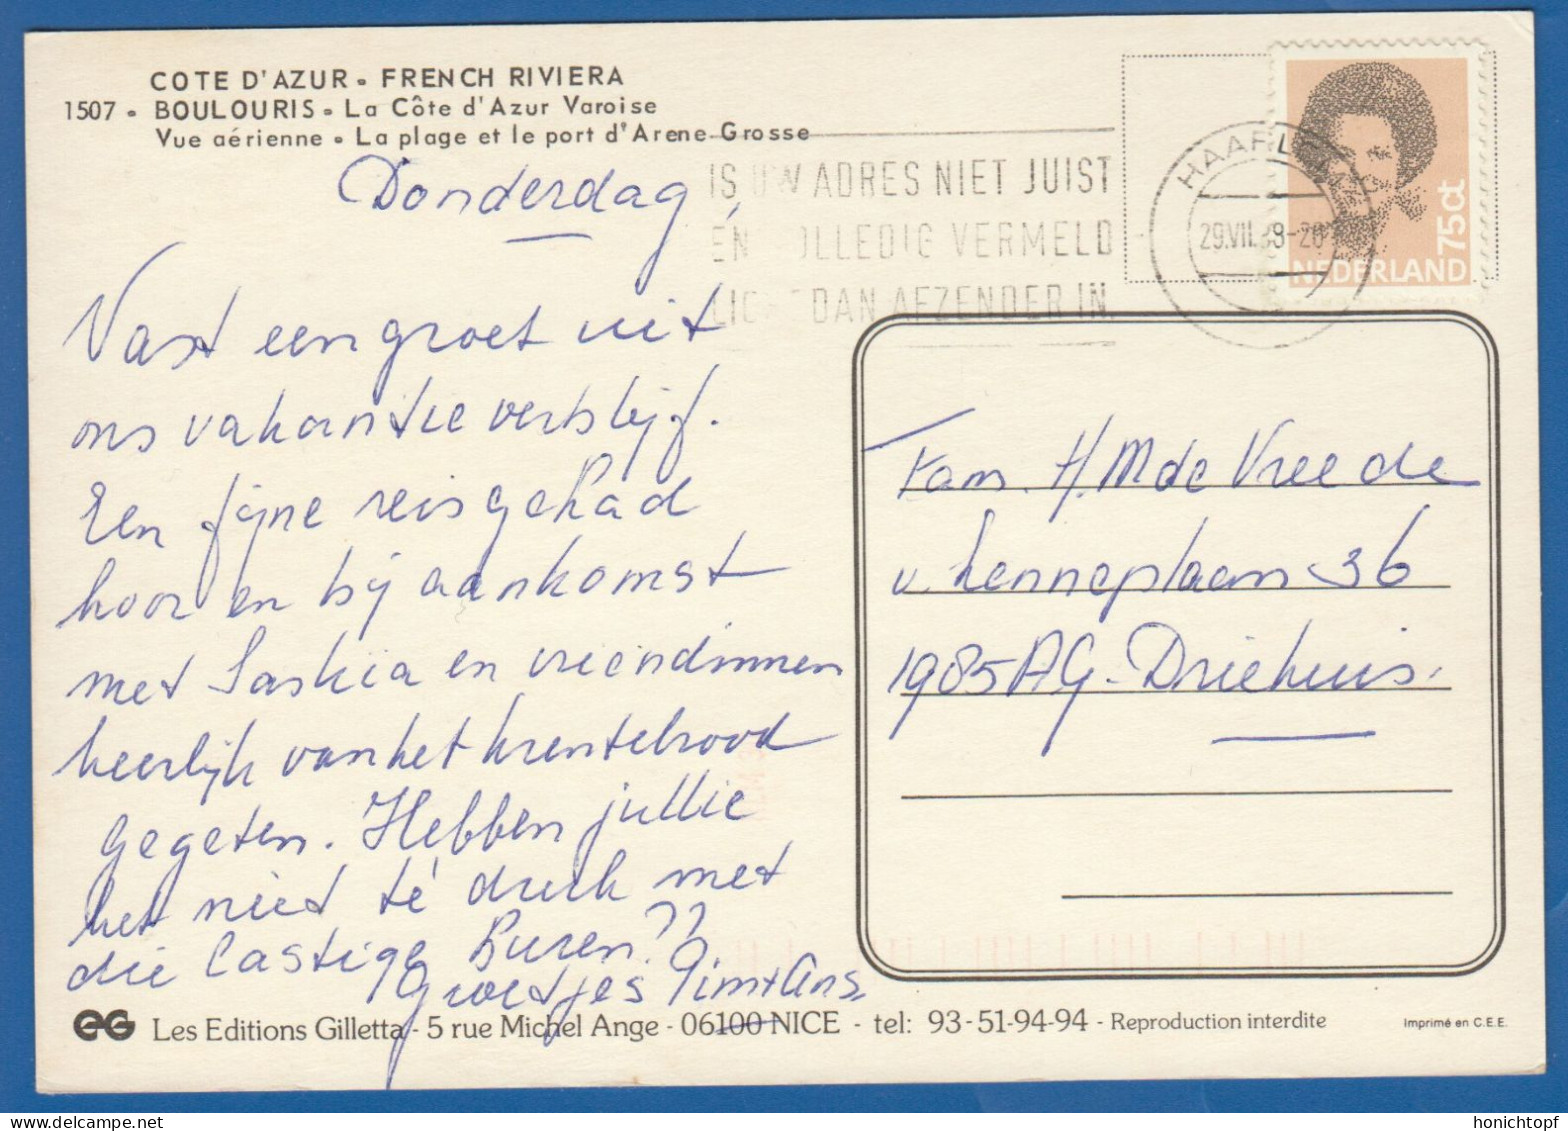 COTE D'AZUR - FRENCH RIVIERA
1507 - BOULOURIS - La Côte d'Azur Varoise
Vue aérienne - La plage et le port d'Arene Grosse
IS UW ADRES NIET JUIST
ÉN VOLLEDIG VERMELD
LICHT DAN AFZENDER IN.
HAARLEM
29.VII.88-20
75ct
NEDERLAND
Donderdag,
Vast een groet uit
ons vakantie verblijf.
Een fijne reis gehad
hoor en bij aankomst
met Saskia en vriendinnen
heerlijk van het krentebrood
gegeten. Hebben jullie
het niet té druk met
die lastige Buren??
Groetjes Pim + Ans
Fam. H.M de Vreede
v. Lenneplaan 36
1985 AG - Driehuis.
eG Les Editions Gilletta - 5 rue Michel Ange - 06100 NICE - tel: 93-51-94-94 - Reproduction interdite
Imprimé en C.E.E.
honichtopf